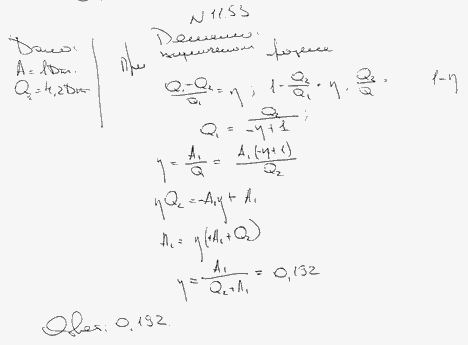 N 11.53
Дано:
A = 1 Дж.
Q₂ = 4,2 Дж
Решение:
При циклическом
(Q₁-Q₂)/Q₁ = η ; 1 - Q₂/Q₁ = η . Q₂/Q = 1-η
Q₁ = Q₂/(-η+1) ;
η = A₁/Q = A₁(-η+1)/Q₂
ηQ₂ = -A₁η + A₁
A₁ = η(+A₁+Q₂)
η = A₁/(Q₂+A₁) = 0,192
Ответ: 0,192.